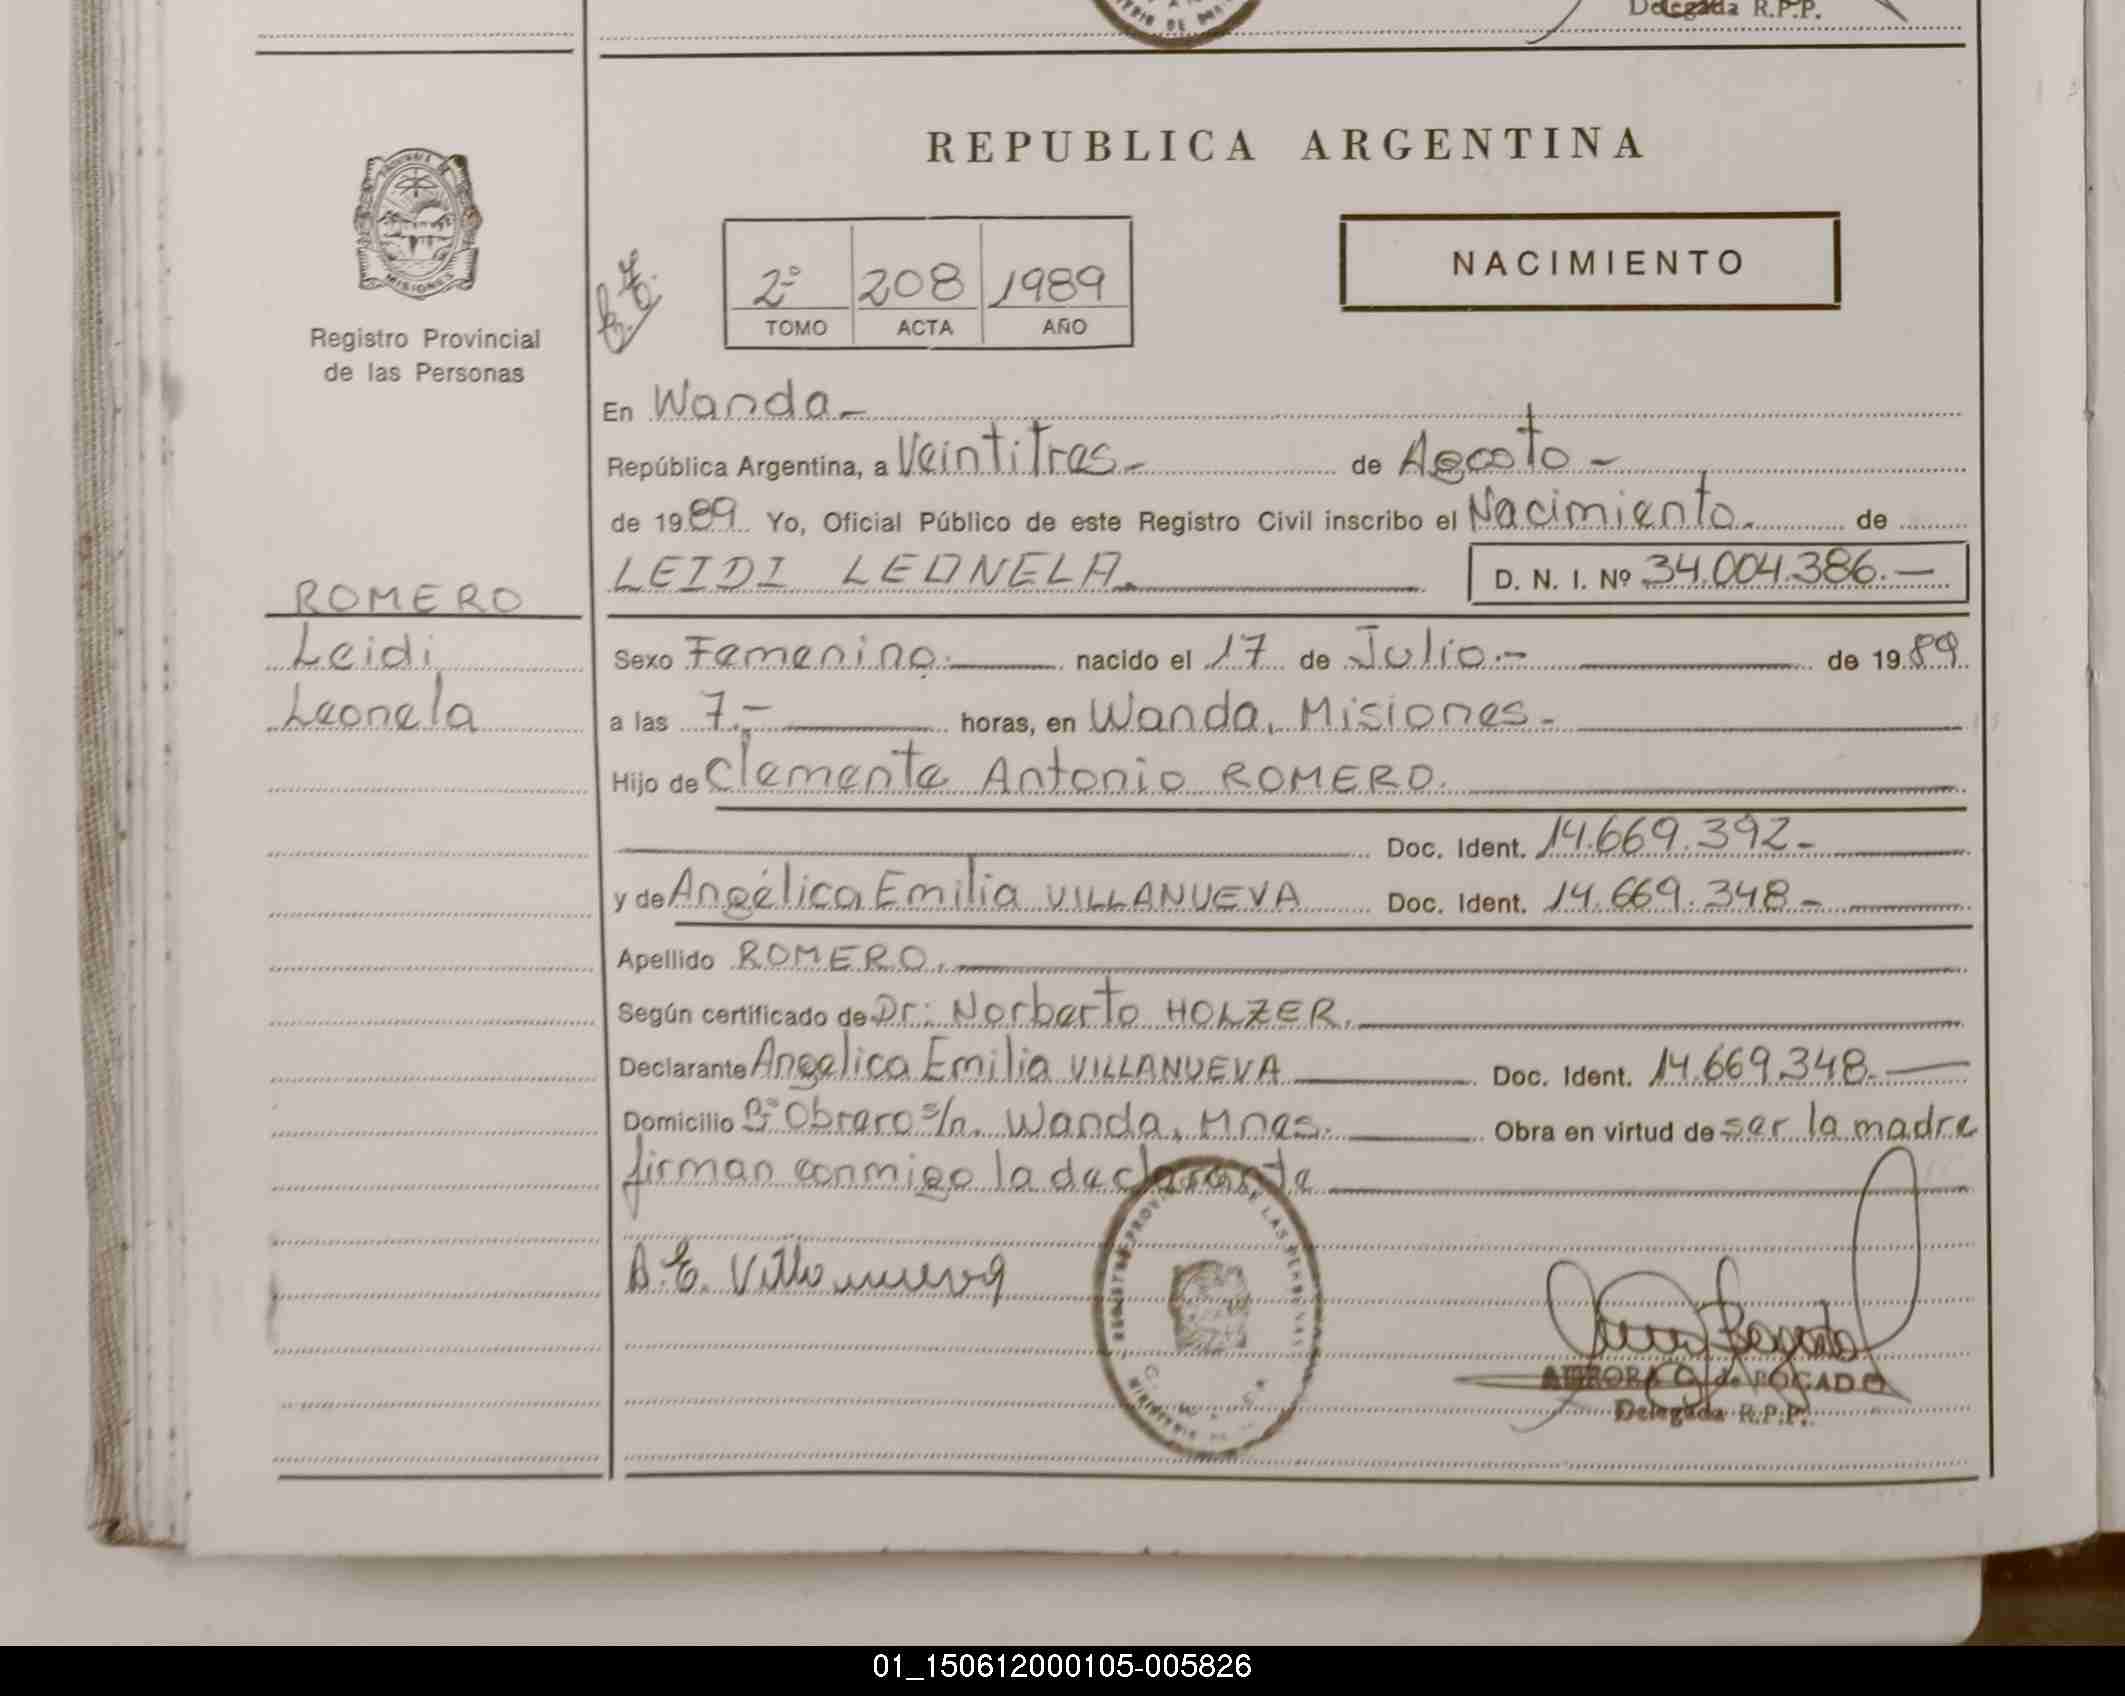 Delegada R.P.P.
REPUBLICA ARGENTINA
NACIMIENTO
2º 208 1989
TOMO ACTA AÑO
MISIONES
Registro Provincial
de las Personas
En Wanda.-
República Argentina, a Veintitres.- de Agosto-
de 1989 Yo, Oficial Público de este Registro Civil inscribo el Nacimiento. de
LEIDI LEONELA. D. N. I. Nº 34.004.386.-
ROMERO
Leidi
Leonela
Sexo Femenino. nacido el 17 de Julio.- de 1989
a las 7.- horas, en Wanda, Misiones.-
Hijo de Clemente Antonio ROMERO.
Doc. Ident. 14.669.392-
y de Angélica Emilia VILLANUEVA Doc. Ident. 14.669.348-
Apellido ROMERO.
Según certificado de Dr: Norberto HOLZER.
Declarante Angelica Emilia VILLANUEVA Doc. Ident. 14.669.348.-
Domicilio Bº Obrero s/n. Wanda, Mnes. Obra en virtud de ser la madre
firman conmigo la declarante
A.E. Villanueva
REGISTRO PROVINCIAL DE LAS PERSONAS
AURORA G. de BOGADO
Delegada R.P.P.
01_150612000105-005826